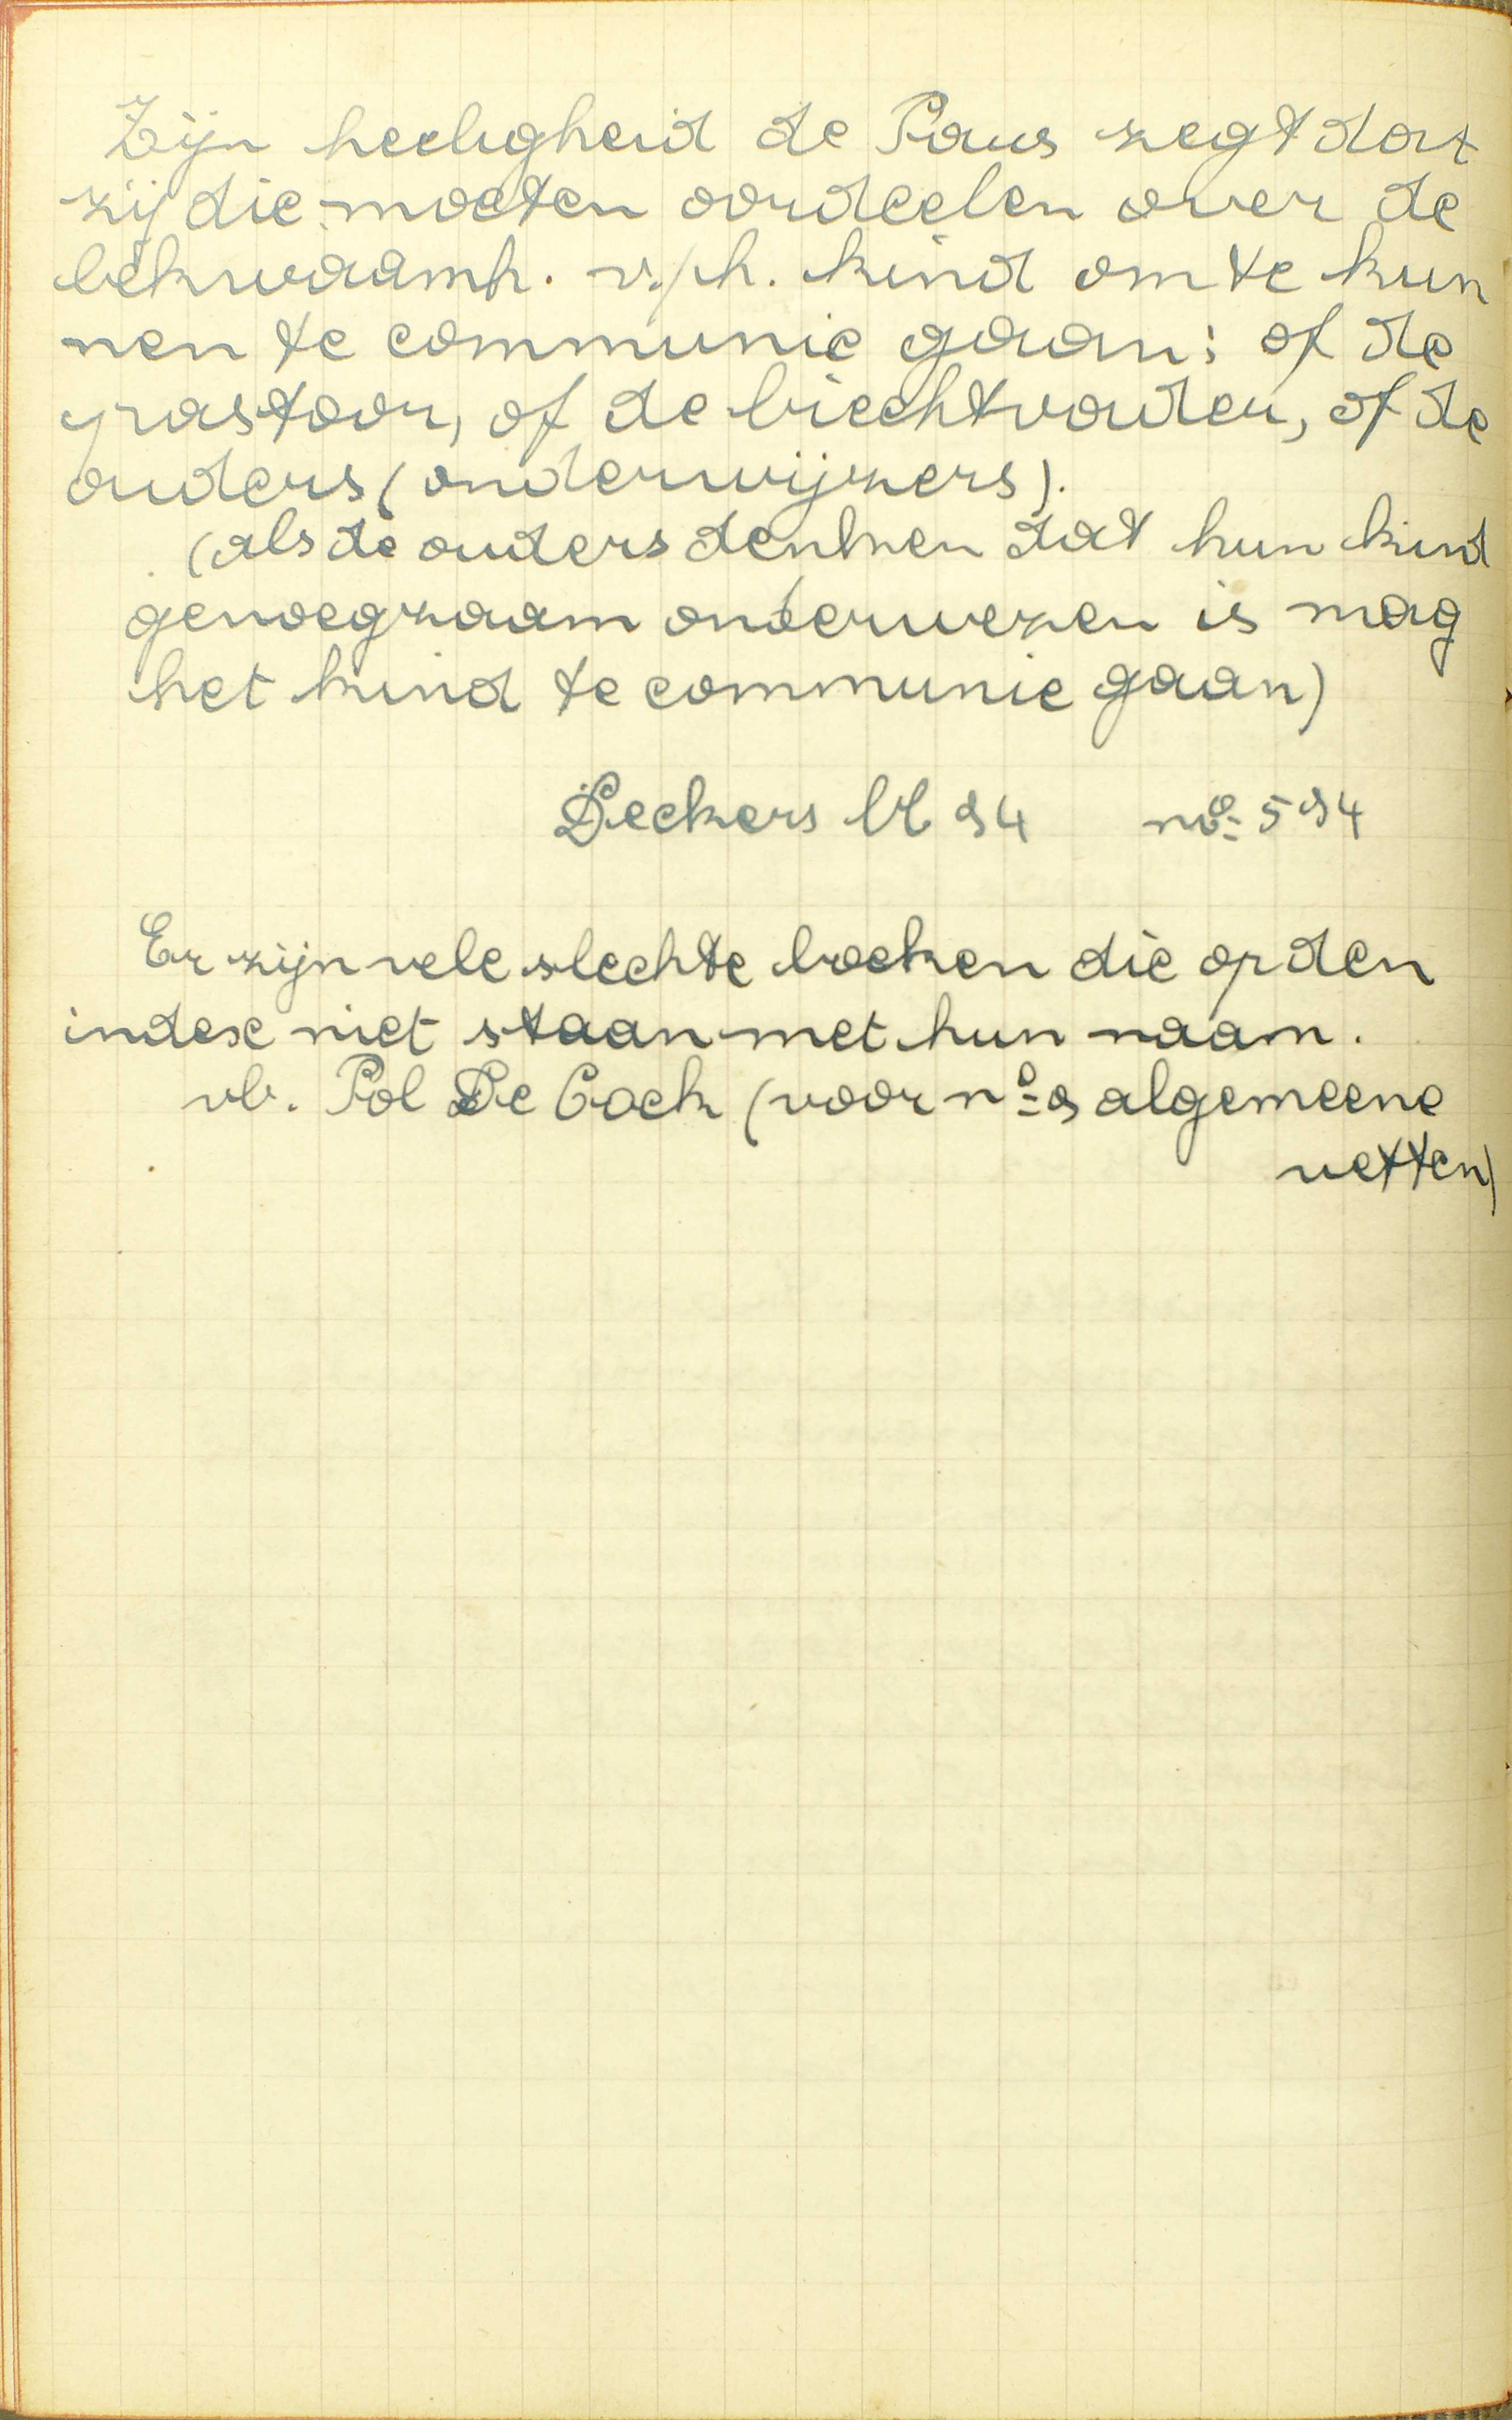 Zijn heeligheid de Paus zegt dat
zij die moeten oordeelen over de
bekwaamh. v/h. kind om te kun
nen te communie gaan: of de
pastoor, of de biechtvader, of de
ouders (onderwijzers).
(als de ouders denken dat hun kind
genoegzaam onderwezen is mag
het kind te communie gaan)
Deckers bl 94 no 594
Er zijn vele slechte boeken die op den
index niet staan met hun naam.
vb. Pol De Cock (voor no 9 algemeene
wetten)